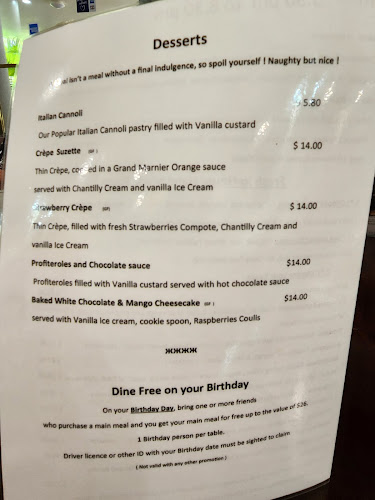 Desserts
isn't a meal without a final indulgence, so spoil yourself ! Naughty but nice !
Italian Cannoli
$ 5.80
Our Popular Italian Cannoli pastry filled with Vanilla custard
Crèpe Suzette (GF ) $ 14.00
Thin Crèpe, cooked in a Grand Marnier Orange sauce
served with Chantilly Cream and vanilla Ice Cream
Strawberry Crèpe (GF) $ 14.00
Thin Crèpe, filled with fresh Strawberries Compote, Chantilly Cream and
vanilla Ice Cream
Profiteroles and Chocolate sauce $14.00
Profiteroles filled with Vanilla custard served with hot chocolate sauce
Baked White Chocolate & Mango Cheesecake (GF ) $14.00
served with Vanilla ice cream, cookie spoon, Raspberries Coulis
жжжж
Dine Free on your Birthday
On your Birthday Day, bring one or more friends
who purchase a main meal and you get your main meal for free up to the value of $26.
1 Birthday person per table.
Driver licence or other ID with your Birthday date must be sighted to claim
( Not valid with any other promotion )